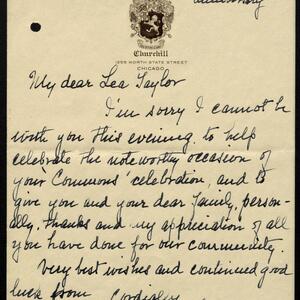 Churchill
1255 NORTH STATE STREET
CHICAGO
My dear Lea Taylor
I'm sorry I cannot be
with you this evening to help
celebrate the noteworthy occasion of
your 'Commons' celebration, and to
give you and your dear family, person-
ally, thanks and my appreciation of all
you have done for our community.
Very best wishes and continued good
luck from Cordially